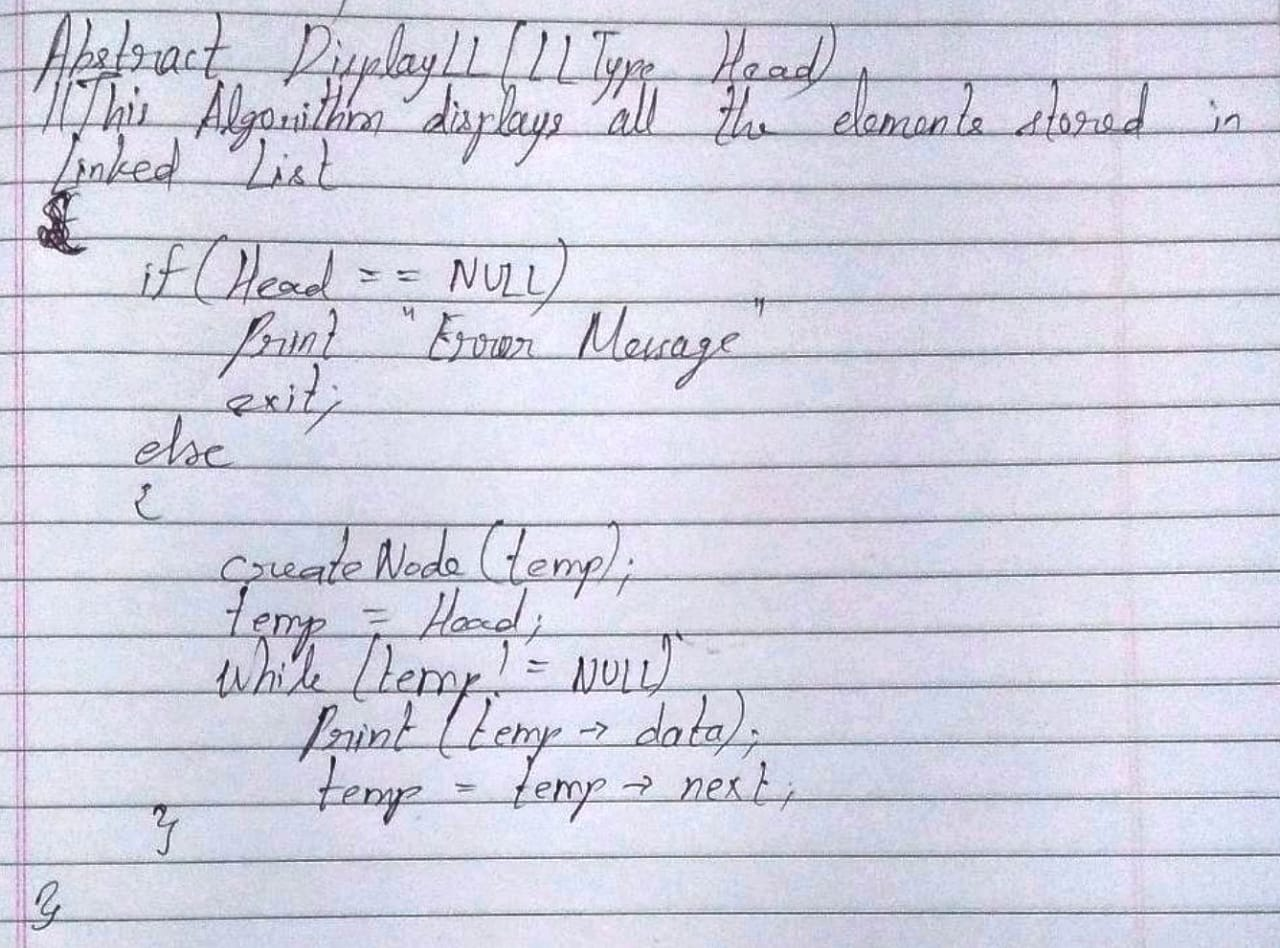 Abstract DisplayLL(LLType Head)
//This Algorithm displays all the elements stored in
Linked List
{
if(Head == NULL)
Print "Error Message"
exit;
else
{
createNode(temp);
temp = Head;
While (temp != NULL)
Print (temp → data);
temp = temp → next;
}
}